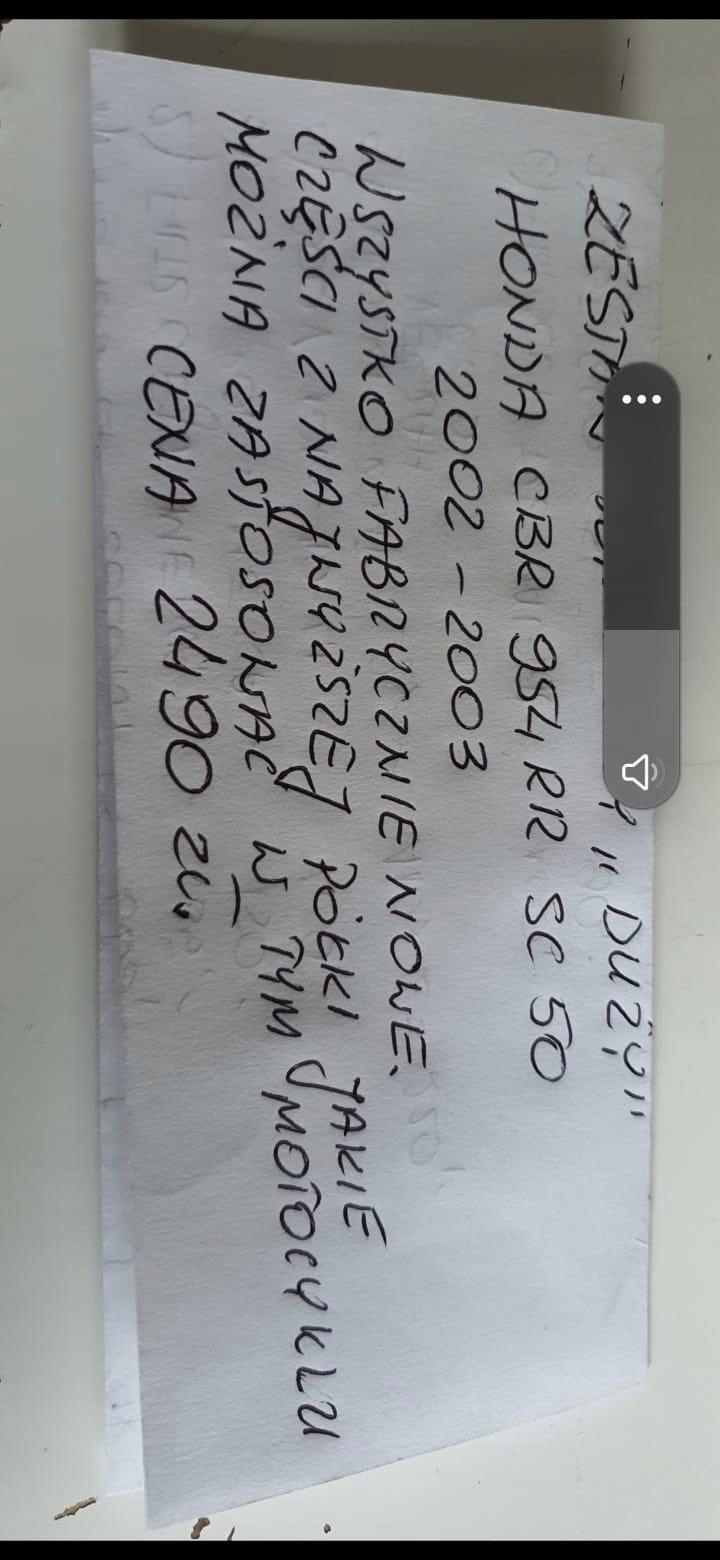 ZESTAW "DUŻY"
HONDA CBR 954 RR SC 50
2002 - 2003
WSZYSTKO FABRYCZNIE NOWE.
CZĘŚCI Z NAJWYŻSZEJ PÓŁKI JAKIE
MOŻNA ZASTOSOWAĆ W TYM MOTOCYKLU
CENA 2490 ZŁ.